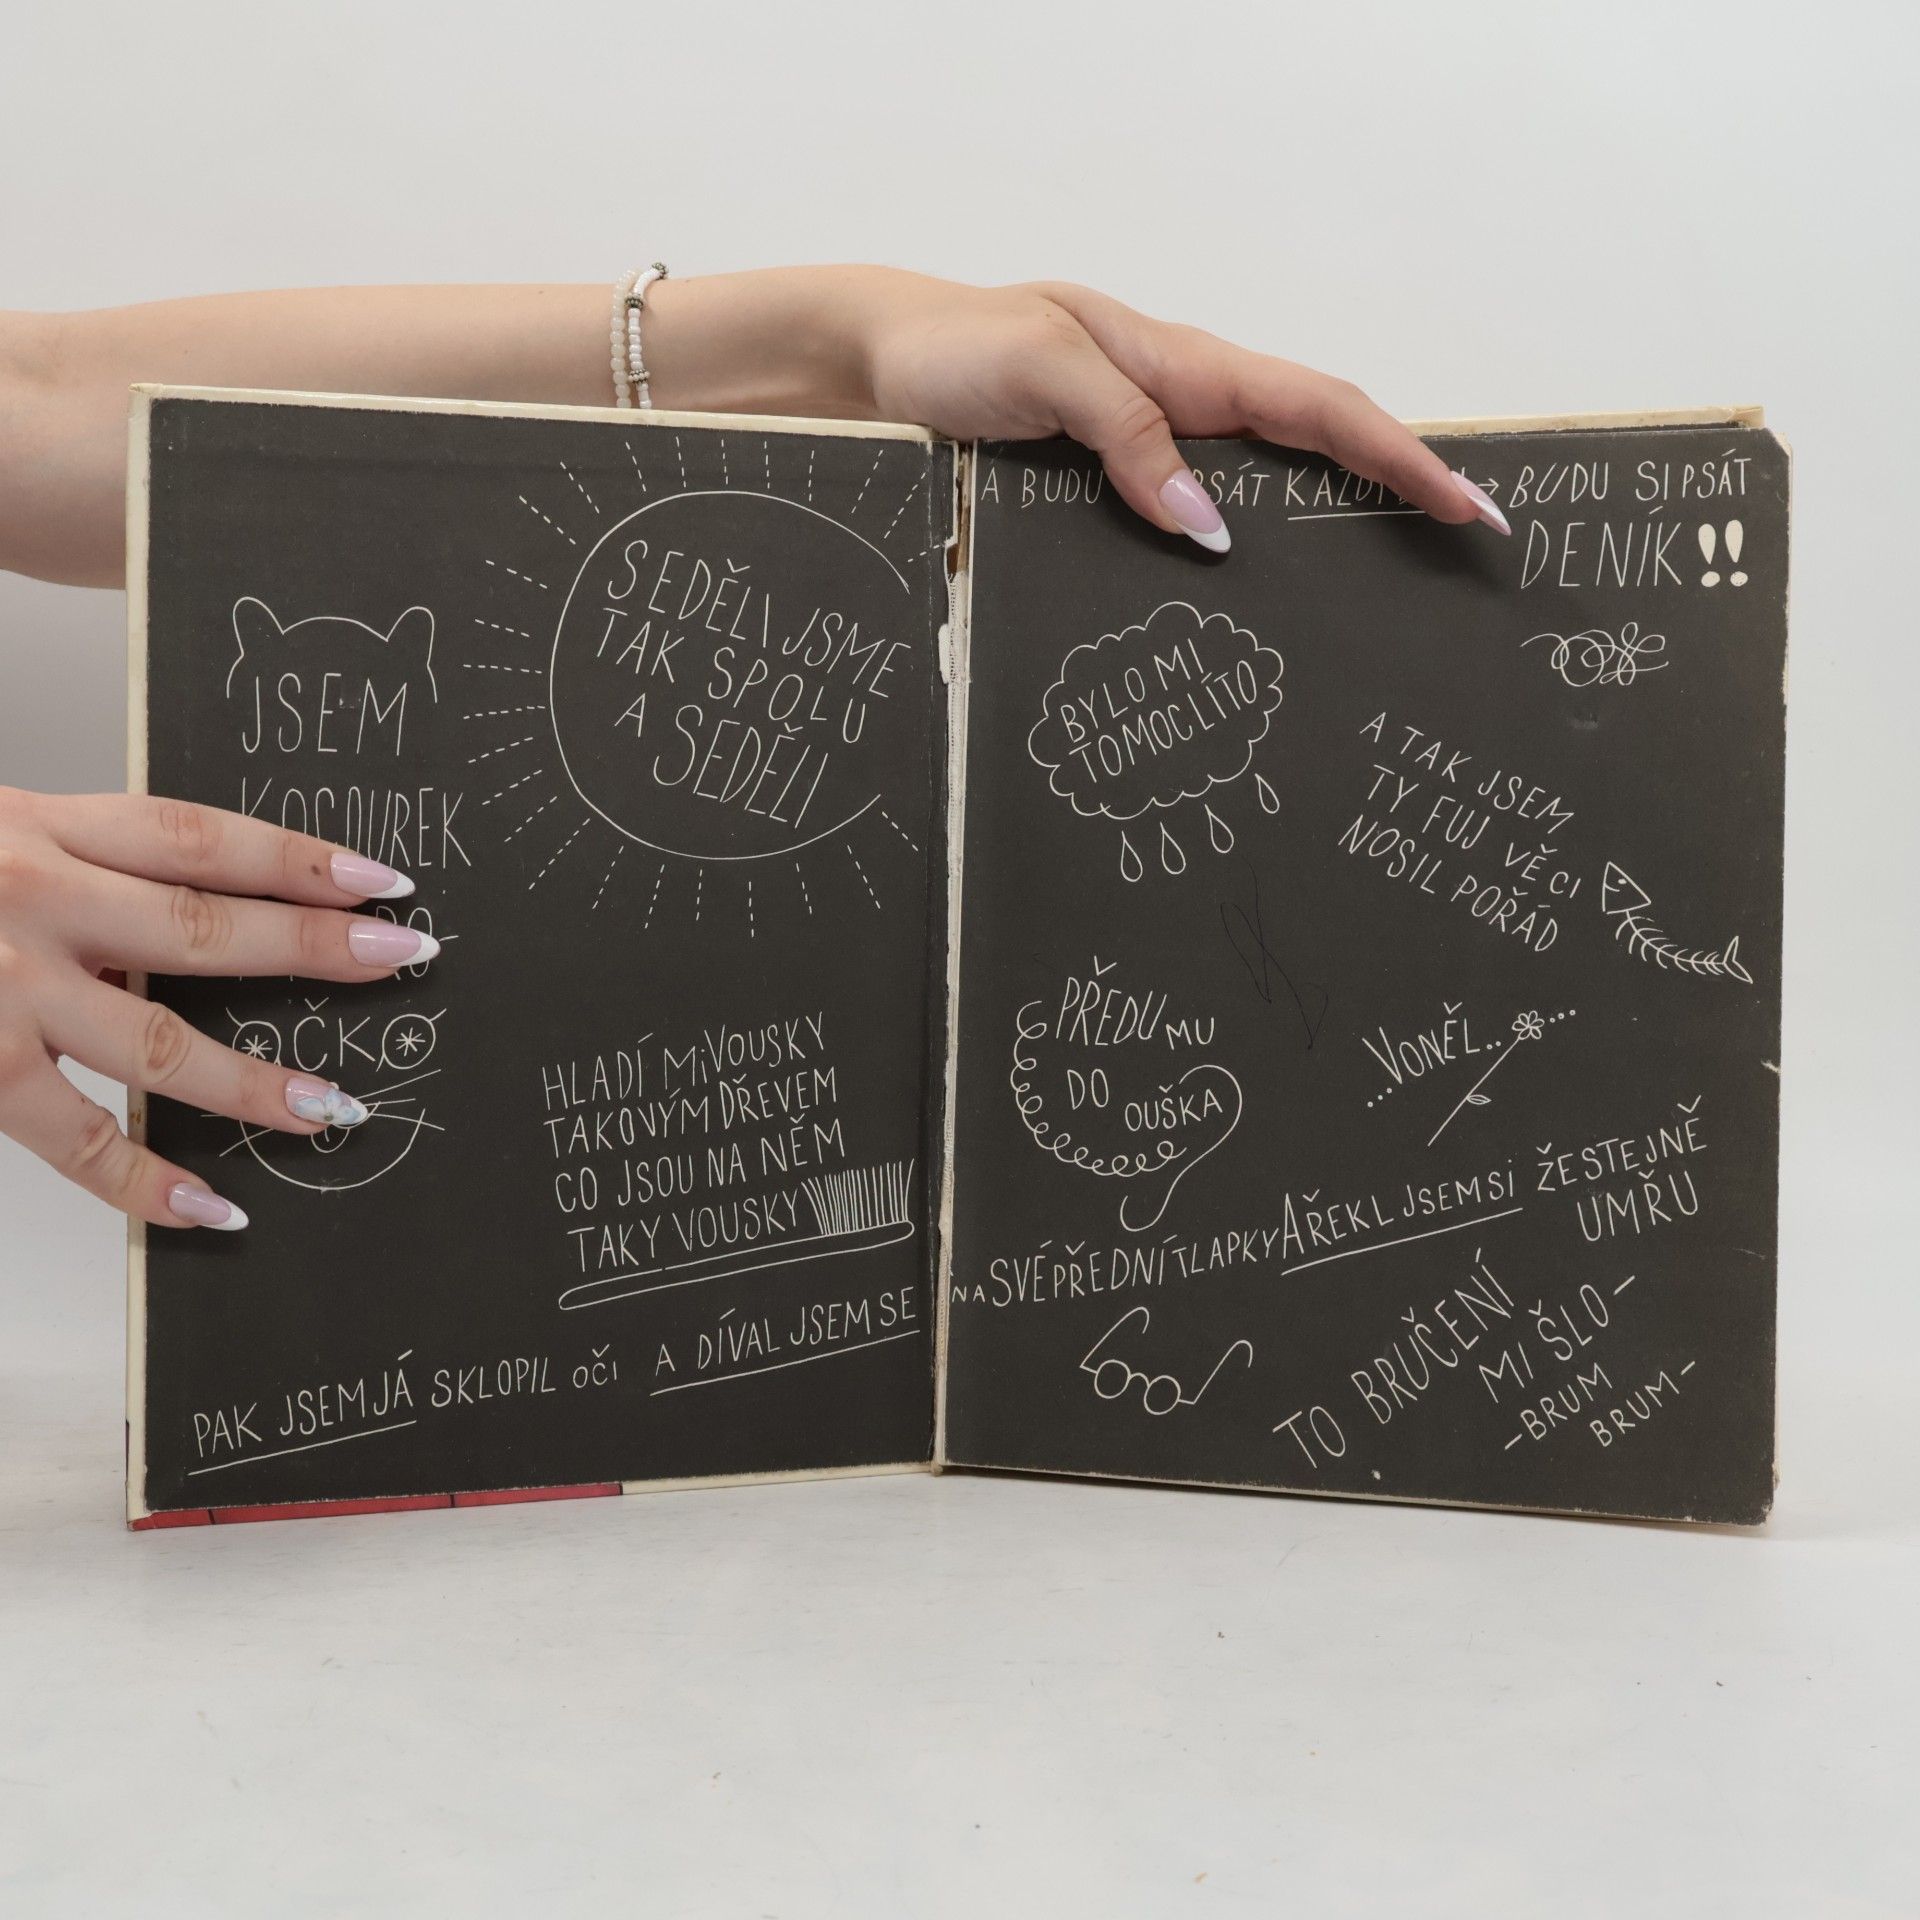 SEDĚLI JSME
TAK SPOLU
A SEDĚLI
JSEM
KOCOUREK
OČKO
HLADÍ MI VOUSKY
TAKOVÝM DŘEVEM
CO JSOU NA NĚM
TAKY VOUSKY
PAK JSEM JÁ SKLOPIL OČI A DÍVAL JSEM SE
Á BUDU PSÁT → BUDU SI PSÁT
DENÍK!!
BYLO MI
TOMOC LÍTO
A TAK JSEM
TY FUJ VĚCI
NOSIL POŘÁD
PŘEDU MU
DO
OUŠKA
...VONĚL.. ...
NA SVÉ PŘEDNÍ TLAPKY A ŘEKL JSEM SI ŽE STEJNĚ
UMŘU
TO BRUČENÍ
MI ŠLO–
–BRUM
BRUM–